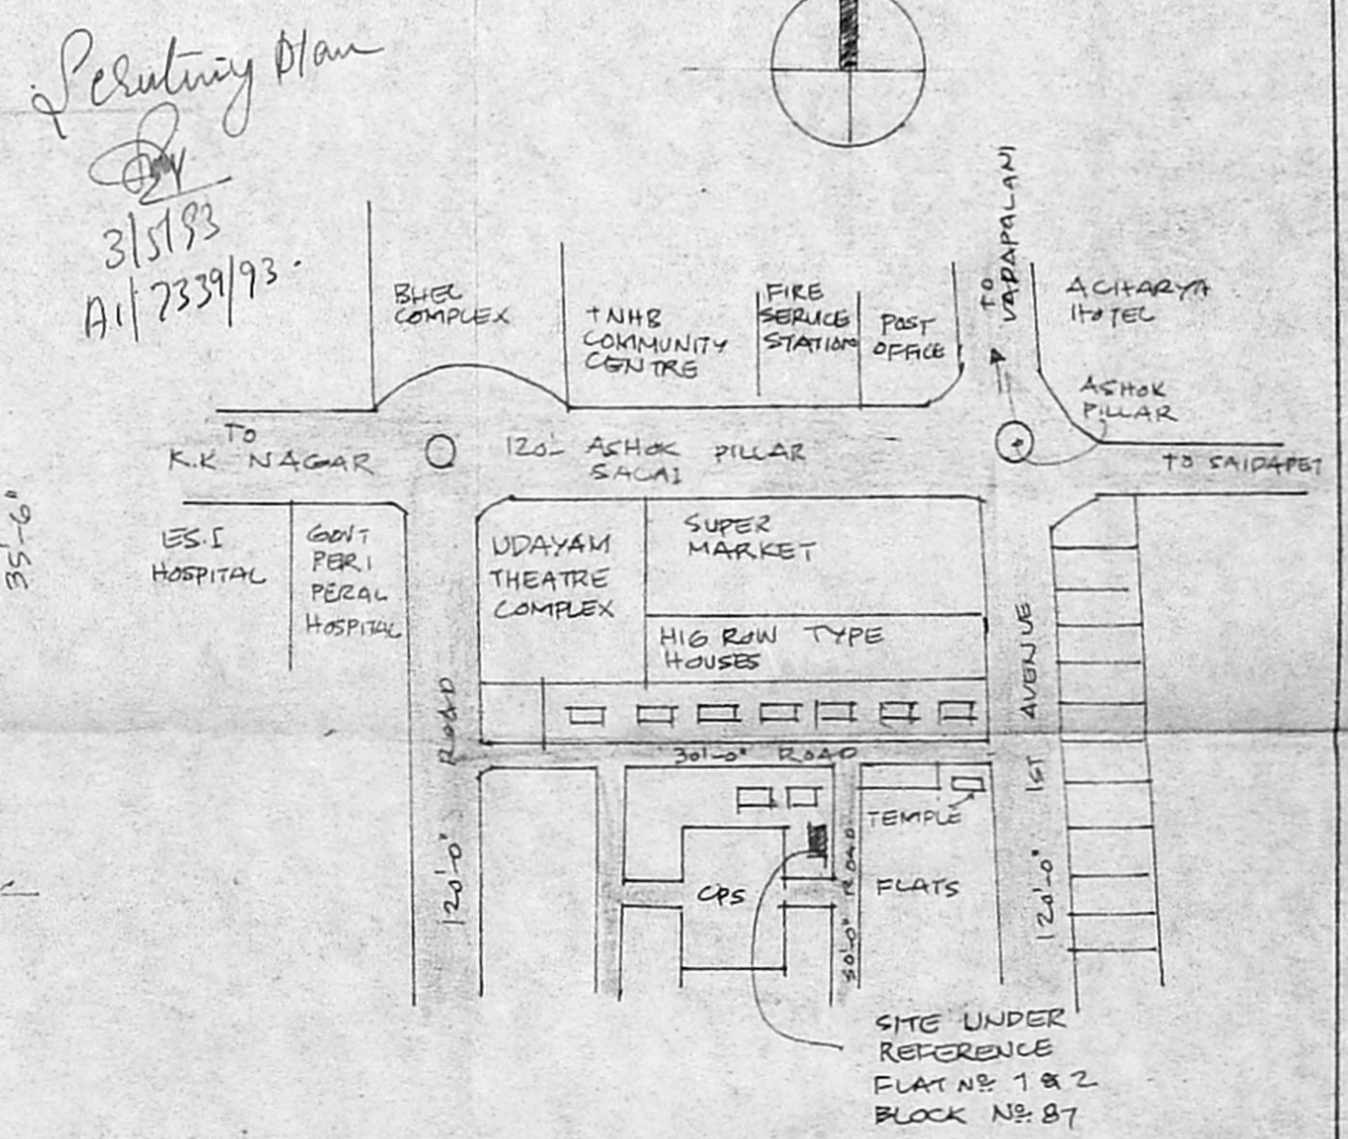 Scrutiny Plan
3/5/93
A1/7339/93.
TO
VADAPALANI
BHEL
COMPLEX
TNHB
COMMUNITY
CENTRE
FIRE
SERVICE
STATION
POST
OFFICE
ACHARYA
HOTEL
ASHOK
PILLAR
TO
K.K NAGAR
120'- ASHOK PILLAR
SALAI
TO SAIDAPET
35'-6"
ES.I
HOSPITAL
GOVT
PERI
PERAL
HOSPITAL
UDAYAM
THEATRE
COMPLEX
SUPER
MARKET
HIG ROW TYPE
HOUSES
120'-0" ROAD
30'-0" ROAD
120'-0" 1ST AVENUE
TEMPLE
CPS
30'-0" ROAD
FLATS
SITE UNDER
REFERENCE
FLAT Nº 1 & 2
BLOCK Nº 87